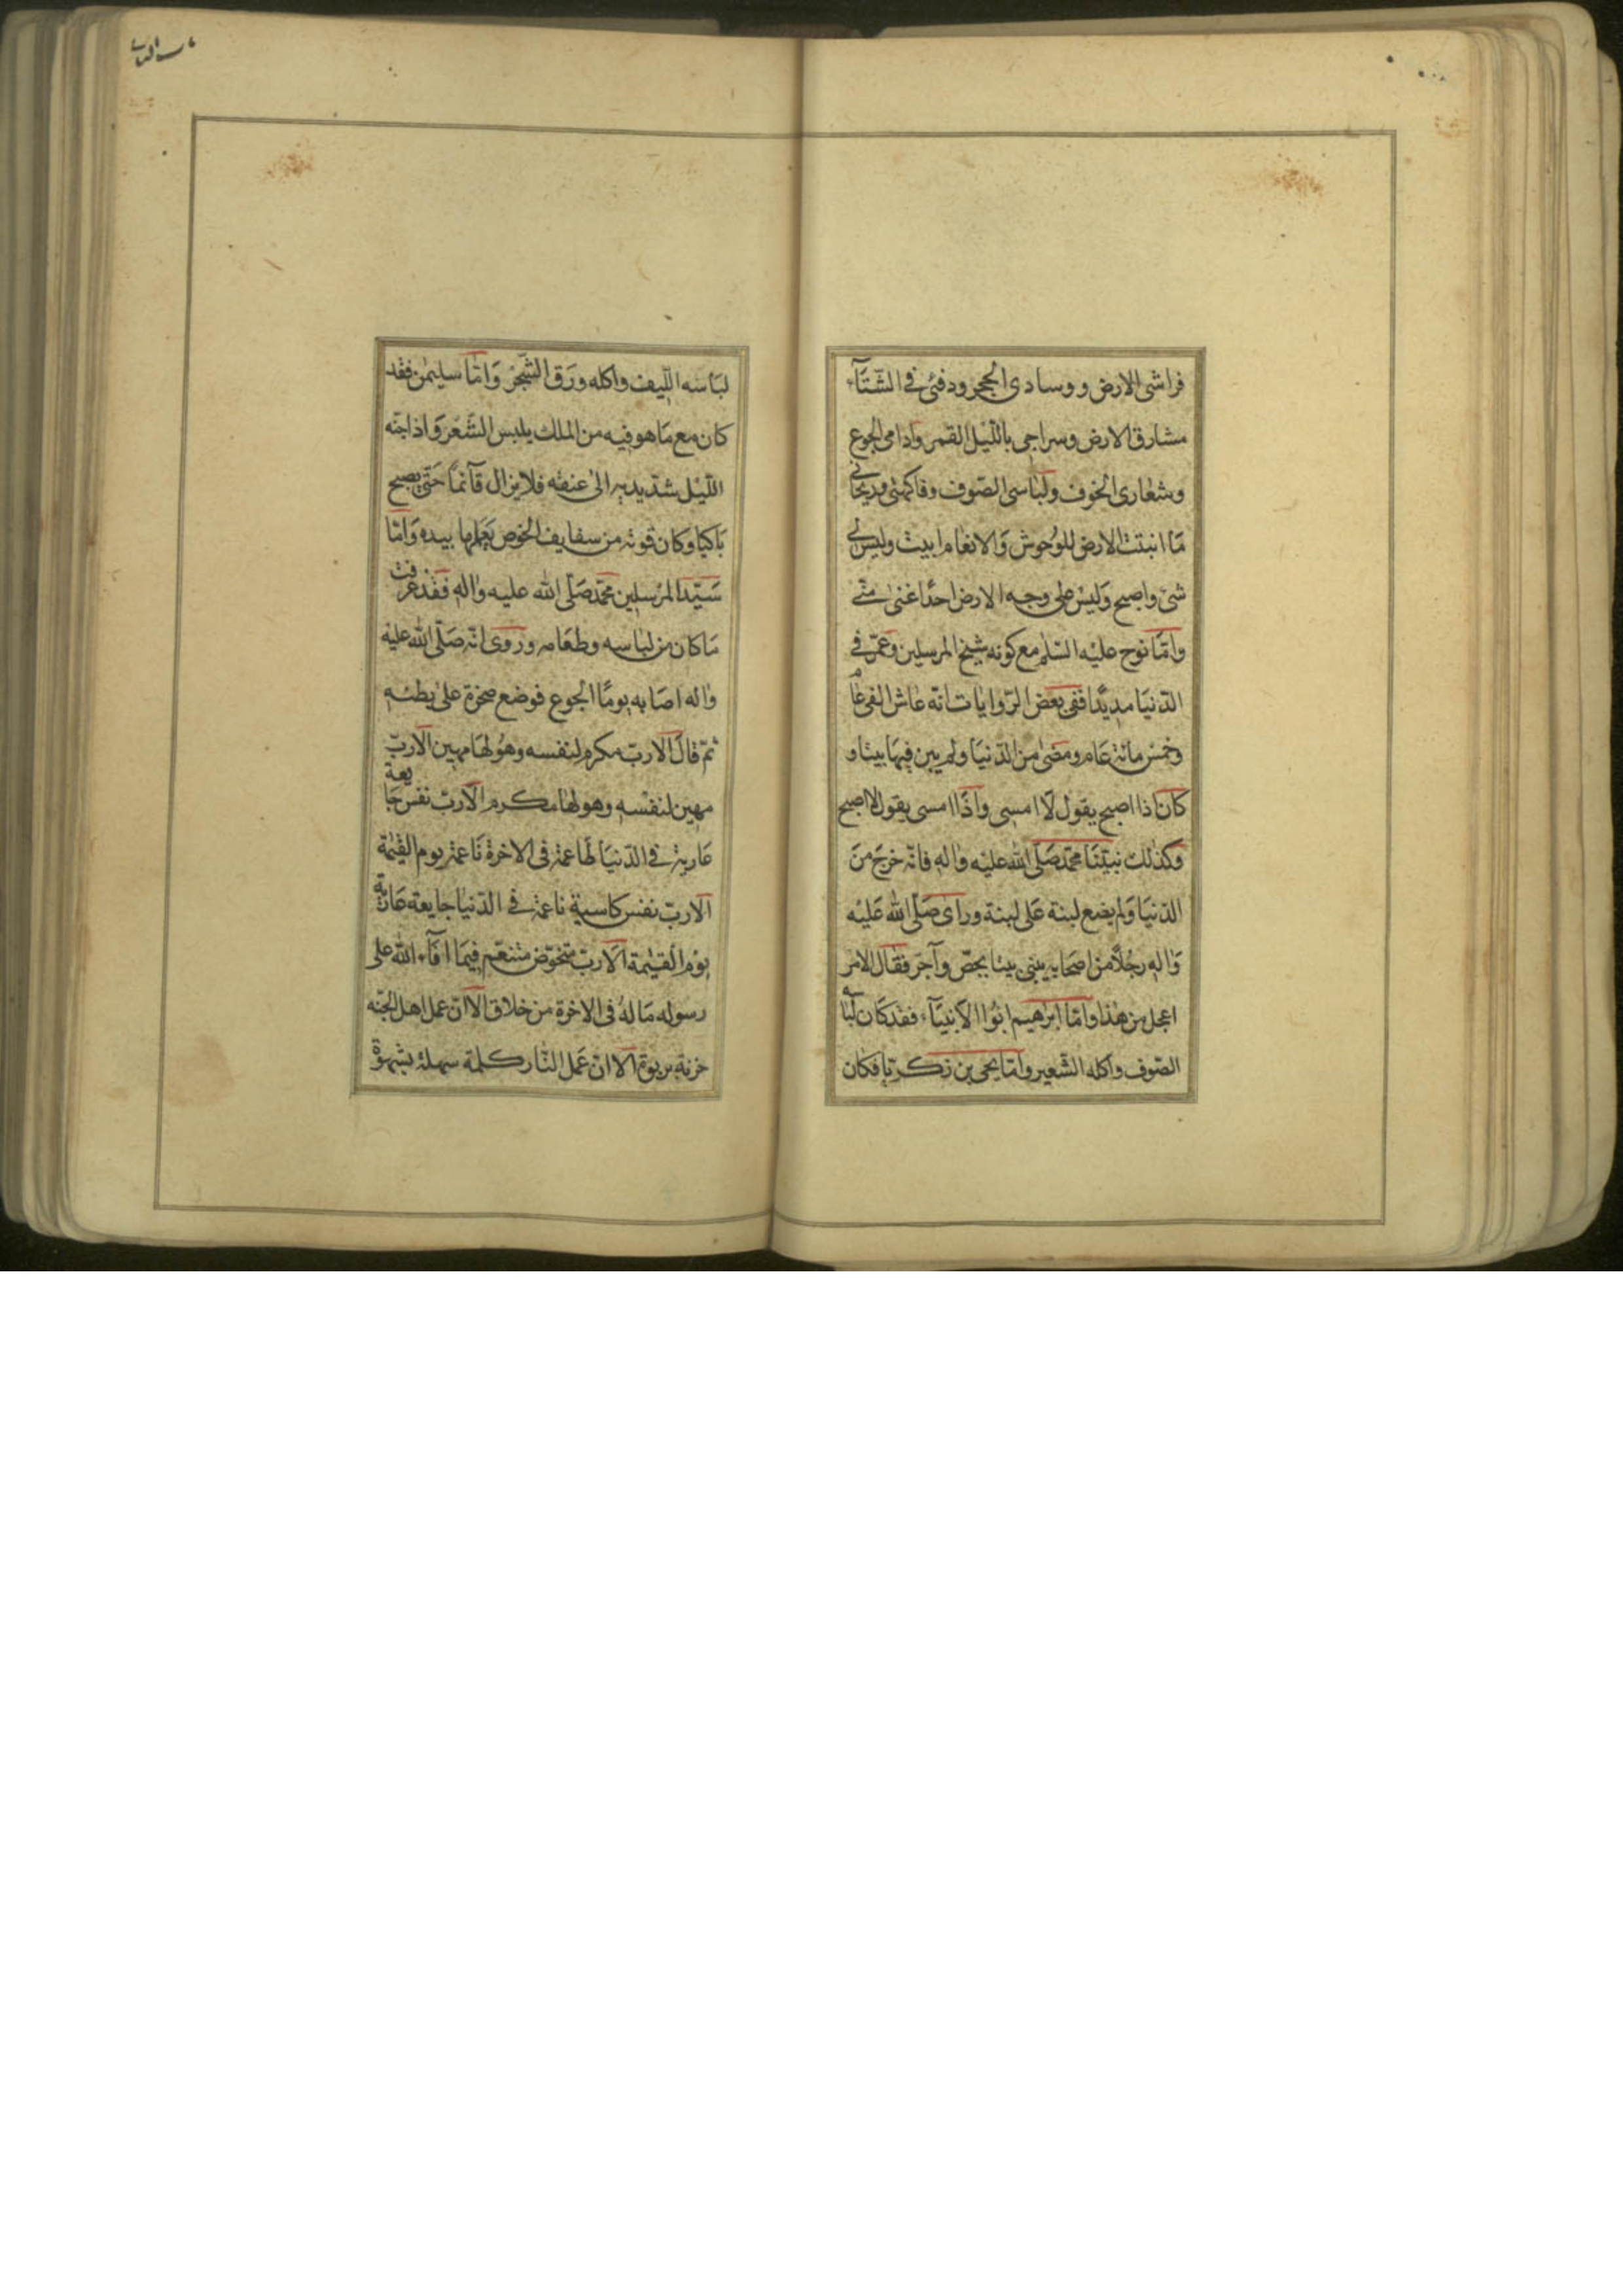 فراشی الارض ووسادی الحجر ودفئی فی الشتآء
مشارق الارض وسراجی باللیل القمر وادامی الجوع
وشعاری الخوف ولباسی الصوف وفاکهتی وریحانی
مَا انبتت الارض للوُحوش وَالانعام ابیت ولیس لی
شیٔ واصبح وَلیسَ علی وجه الارض احدًا غنیٰ منّی
وامّا نوح علیه السّلم مع کونه شیخ المرسلین وعمّر فی
الدّنیَا مدیدًا ففی بعض الرّوایات انّه عاش الفی عامٍ
وخمس مائة عَام ومضیٰ من الدّنیَا ولم یبن فیهَا بیتا و
کان اذا اصبح یقول لَا امسی وَاذَا امسی یقول لا اصبح
وکذلک نبیّنا محمّد صَلّی الله علیه واٰله فانّه خرجَ منَ
الدّنیَا وَلم یضع لبنة عَلی لبنة ورای صَلّی الله عَلیْه
وَاٰلهِ رجُلًا من اصحَابه یبنی بیتا بجصّ وآجر فقال الامر
اعجل من هٰذا وامّا ابرٰهیم ابُوا الَانبیَآء فقد کان لباسه
الصّوف واکله الشّعیر وامّا یحیی بن زکریّا فکان
لبَاسه اللّیف واکله ورَق الشّجَرْ وَامّا سلیمٰن فقد
کان مع مَا هو فیه من الملک یلبس الشّعَرْ وَاذا جنّه
اللّیل شدّ یدیه الیٰ عنقه فلا یزال قآئمًا حَتّی یصبح
بَاکیًا وَکان قوته من سفایف الخوص یَعملها بیده وَامّا
سَیّد المرْسلین محمّد صَلّی الله علیه واٰلهِ فقد عرفت
مَا کان من لبَاسه وطعَامه وروی انّه صَلّی الله علیْه
واٰله اصَابه یومًا الجوع فوضع صخرة علیٰ بطنه
ثمّ قال الَا ربّ مکرم لنفسه وهوُ لهَا مهین الَا ربّ
مهین لنفْسهِ وهو لهَا مکرم الَا ربّ نفس جَایعة
عَاریة فی الدّنیَا طَاعمة فی الاخرة نَاعمة یوم القیٰمة
الَا ربّ نفس کاسیة ناعمة فی الدّنیا جایعة عَاریة
یوْم القیٰمة الَا ربّ متخوّض متنعّم فیمَا افآء الله علی
رسوله مَا لهُ فی الاخرة من خلاق الَا انّ عمل اهل الجنّه
حزنة بربوة الَا انّ عَمل النّار کلمة سهلة بشهوة